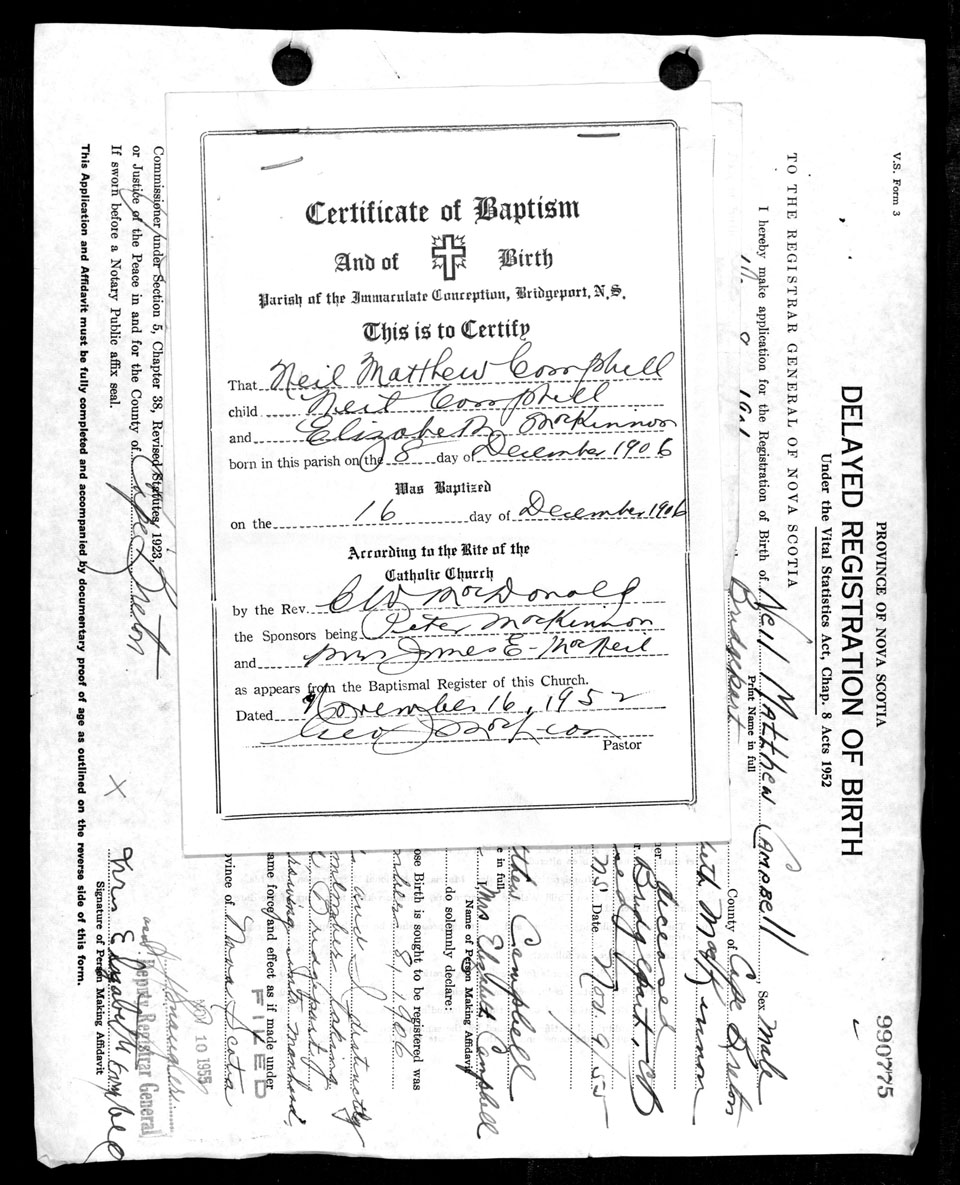 Certificate of Baptism
And of Birth
Parish of the Immaculate Conception, Bridgeport, N.S.
This is to Certify
That Neil Matthew Campbell
child Neil Campbell
and Elizabeth MacKinnon
born in this parish on the 8 day of December 1906
Was Baptized
on the 16 day of December 1906
According to the Rite of the
Catholic Church
by the Rev. C W MacDonald
the Sponsors being Peter MacKinnon
and Mrs James E. MacNeil
as appears from the Baptismal Register of this Church.
Dated November 16, 1952
Pastor
V.S. Form 3
990775
PROVINCE OF NOVA SCOTIA
DELAYED REGISTRATION OF BIRTH
Under the Vital Statistics Act, Chap. 8 Acts 1952
TO THE REGISTRAR GENERAL OF NOVA SCOTIA
I hereby make application for the Registration of Birth of Neil Matthew Campbell, Sex Male
Print Name in full
Bridgeport County of Cape Breton
beth MacKinnon
deceased
Bridgeport, CB
NS Date Nov 9/55
thew Campbell
e in full
Mrs Elizabeth Campbell
Name of Person Making Affidavit
do solemnly declare:
ose Birth is sought to be registered was
mber 8, 1906
and I distinctly
remember taking
Bridgeport,
into manhood,
ame force and effect as if made under
FILED
ovince of Nova Scotia
NOV 10 1955
Deputy Registrar General
Commissioner under Section 5, Chapter 38, Revised Statutes, 1923,
or Justice of the Peace in and for the County of Cape Breton
If sworn before a Notary Public affix seal.
X Mrs Elizabeth Campbell
Signature of Person Making Affidavit
This Application and Affidavit must be fully completed and accompanied by documentary proof of age as outlined on the reverse side of this form.